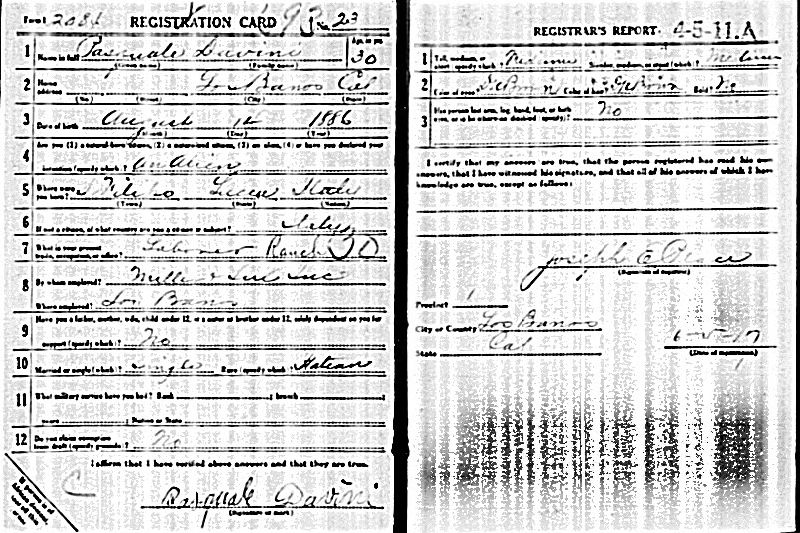 Form 1 REGISTRATION CARD No. 23
1 Name in full Pasquale Davini Age, in yrs. 30
(Given name) (Family name)
2 Home address Los Banos Cal
(No.) (Street) (City) (State)
3 Date of birth August 12 1886
(Month) (Day) (Year)
Are you (1) a natural-born citizen, (2) a naturalized citizen, (3) an alien, (4) or have you declared your
4 intention (specify which)? an Alien
5 Where were you born? Italy
(Town) (State) (Nation)
6 If not a citizen, of what country are you a citizen or subject? Italy
7 What is your present trade, occupation, or office? Laborer Ranch
8 By whom employed? Miller & Lux Inc
Where employed? Los Banos
9 Have you a father, mother, wife, child under 12, or a sister or brother under 12, solely dependent on you for
support (specify which)? No
10 Married or single (which)? Single Race (specify which)?
11 What military service have you had? Rank ; branch
years ; Nation or State
12 Do you claim exemption from draft (specify grounds)? No
I affirm that I have verified above answers and that they are true.
Pasquale Davini
(Signature or mark)
REGISTRAR'S REPORT 4-5-11.A
1 Tall, medium, or short (specify which)? Medium Slender, medium, or stout (which)? Medium
2 Color of eyes Color of hair Bald? No
3 Has person lost arm, leg, hand, foot, or both eyes, or is he otherwise disabled (specify)? No
I certify that my answers are true, that the person registered has read his own
answers, that I have witnessed his signature, and that all of his answers of which I have
knowledge are true, except as follows:
Joseph
(Signature of registrar)
Precinct 1
City or County Los Banos
State Cal
6-5-17
(Date of registration)